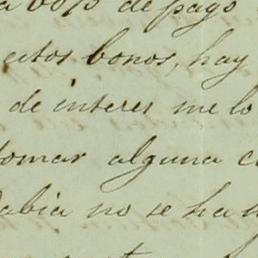 de pago
estos bonos, hay
de interes me lo
tomar alguna
habia no se ha